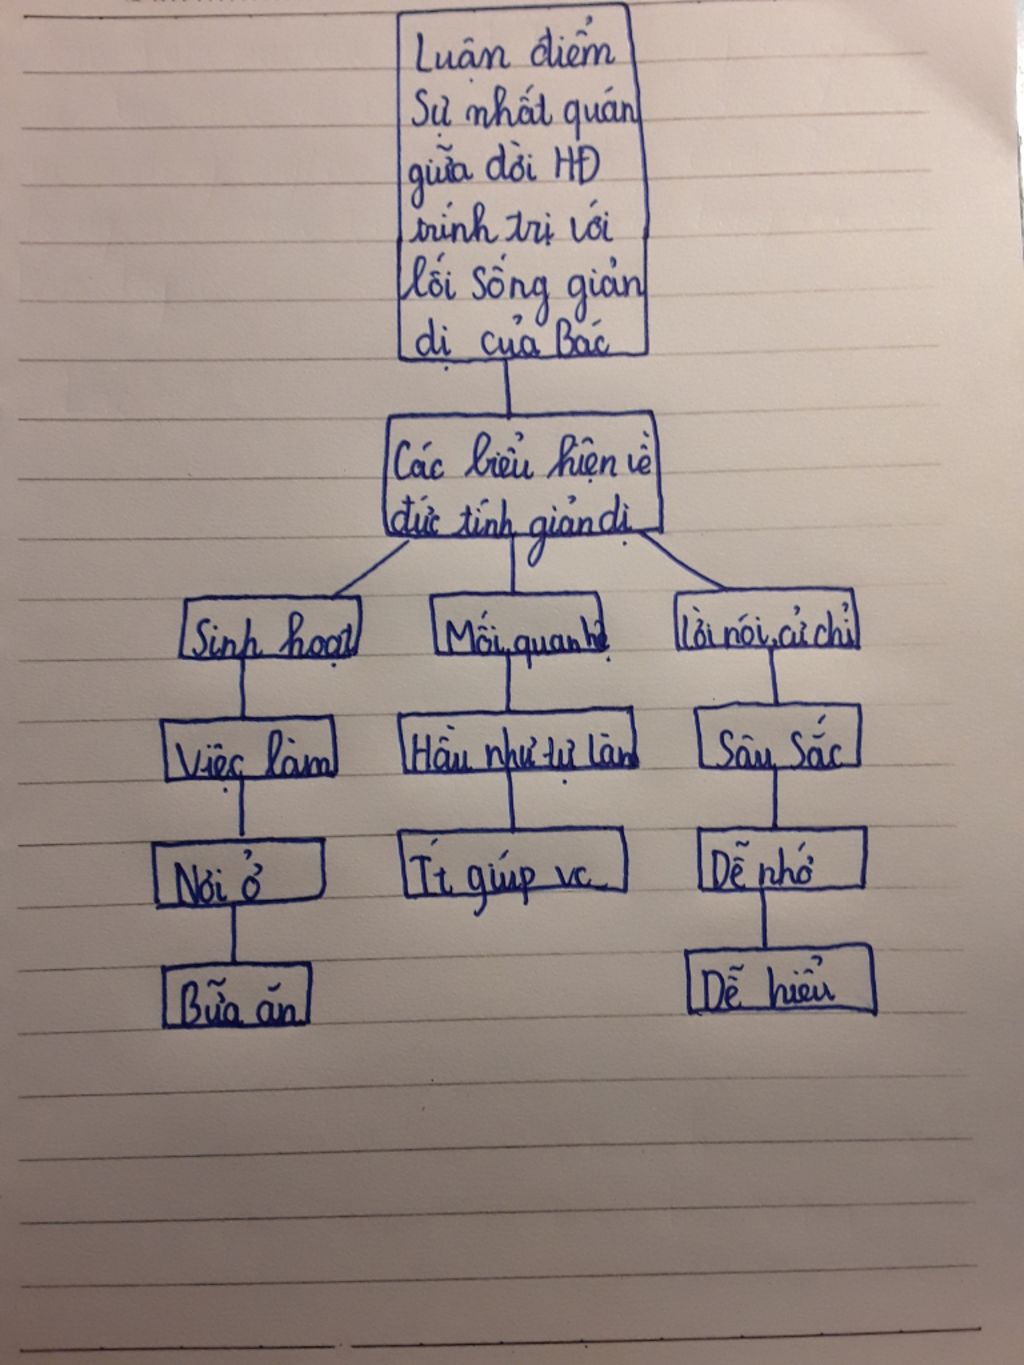 Luận điểm
Sự nhất quán
giữa đời HĐ
trính trị với
lối sống giản
dị của Bác
Các biểu hiện về
đức tính giản dị
Sinh hoạt
Mối quan hệ
Lời nói, cử chỉ
Việc làm
Hầu như tự làm
Sâu sắc
Nơi ở
Ít giúp vc
Dễ nhớ
Bữa ăn
Dễ hiểu